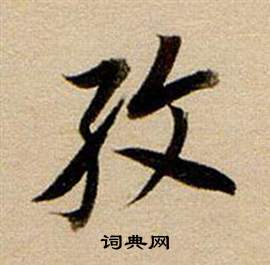 孜
词典网